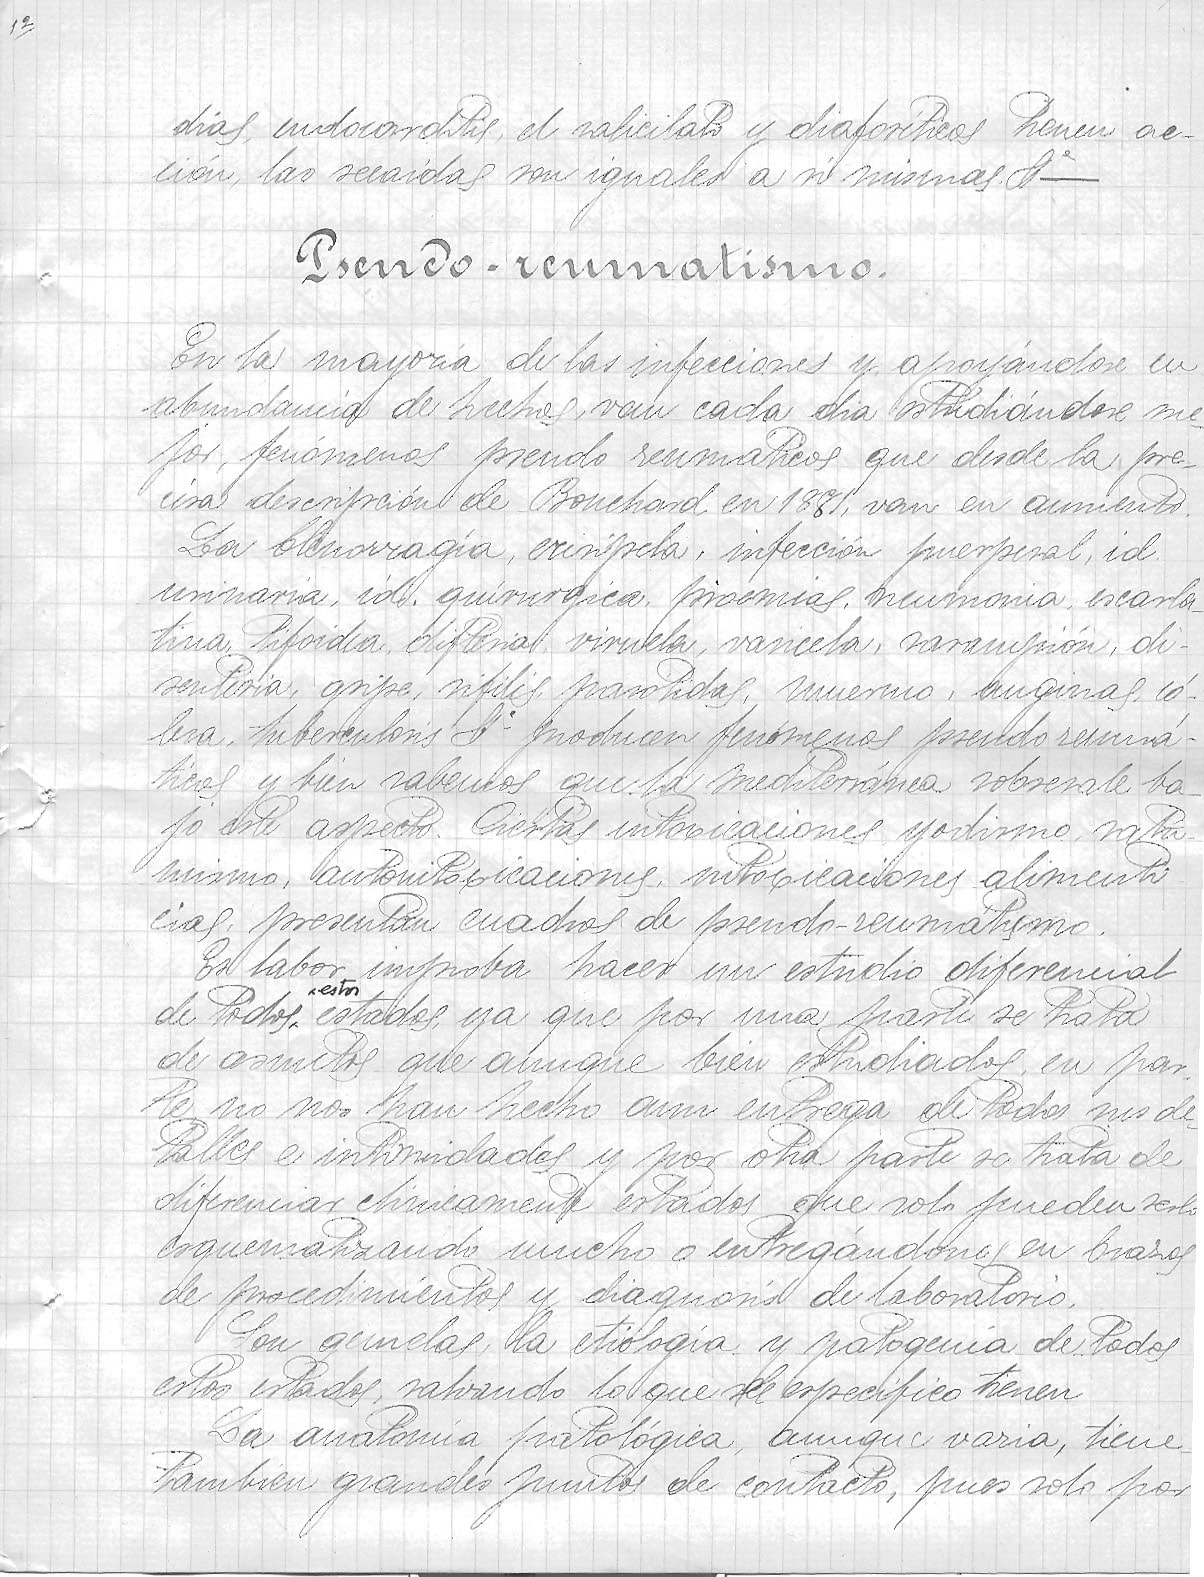 12
dias, endocarditis, el salicilato y diaforéticos tienen ac-
ción, las recaidas son iguales a si mismas. &ª
Pseudo-reumatismo.
En la mayoría de las infecciones y apoyándose en
abundancia de hechos, van cada dia estudiándose me-
jor, fenómenos pseudo reumaticos que desde la pre-
cisa descripción de Bouchard en 1881, van en aumento.
La blenorragía, erisipela, infección puerperal, id.
urinaria, id. quirurgica, pioemias, neumonia, escarla-
tina, tifoidea, difteria, viruela, varicela, sarampión, di-
senteria, gripe, sifilis, parotidas, muermo, anginas, có-
lera, tuberculosis &ª producen fenómenos pseudo reumá-
ticos y bién sabemos que la mediterránea sobresale ba-
jo este aspecto. Ciertas intoxicaciones, yodismo, satur-
nismo, autointoxicaciones, intoxicaciones alimenti
cias, presentan cuadros de pseudo-reumátismo.
Es labor improba hacer un estudio diferencial
de todos estos estados, ya que por una parte se trata
de asuntos que aunque bién estudiados, en par-
te no nos han hecho aun entrega de todos sus de-
talles e intimidades y por otra parte se trata de
diferenciar clinicamente estados que solo pueden serlo
esquematizando mucho o entregándonos en brazos
de procedimiéntos y diagnosis de laboratorio.
Son gemelas, la etiólogia y patogenia de todos
estos estados, salvando lo que de especifico tienen
La anatomía patológica, aunque varia, tiene
tambien grandes puntos de contacto, pues solo por